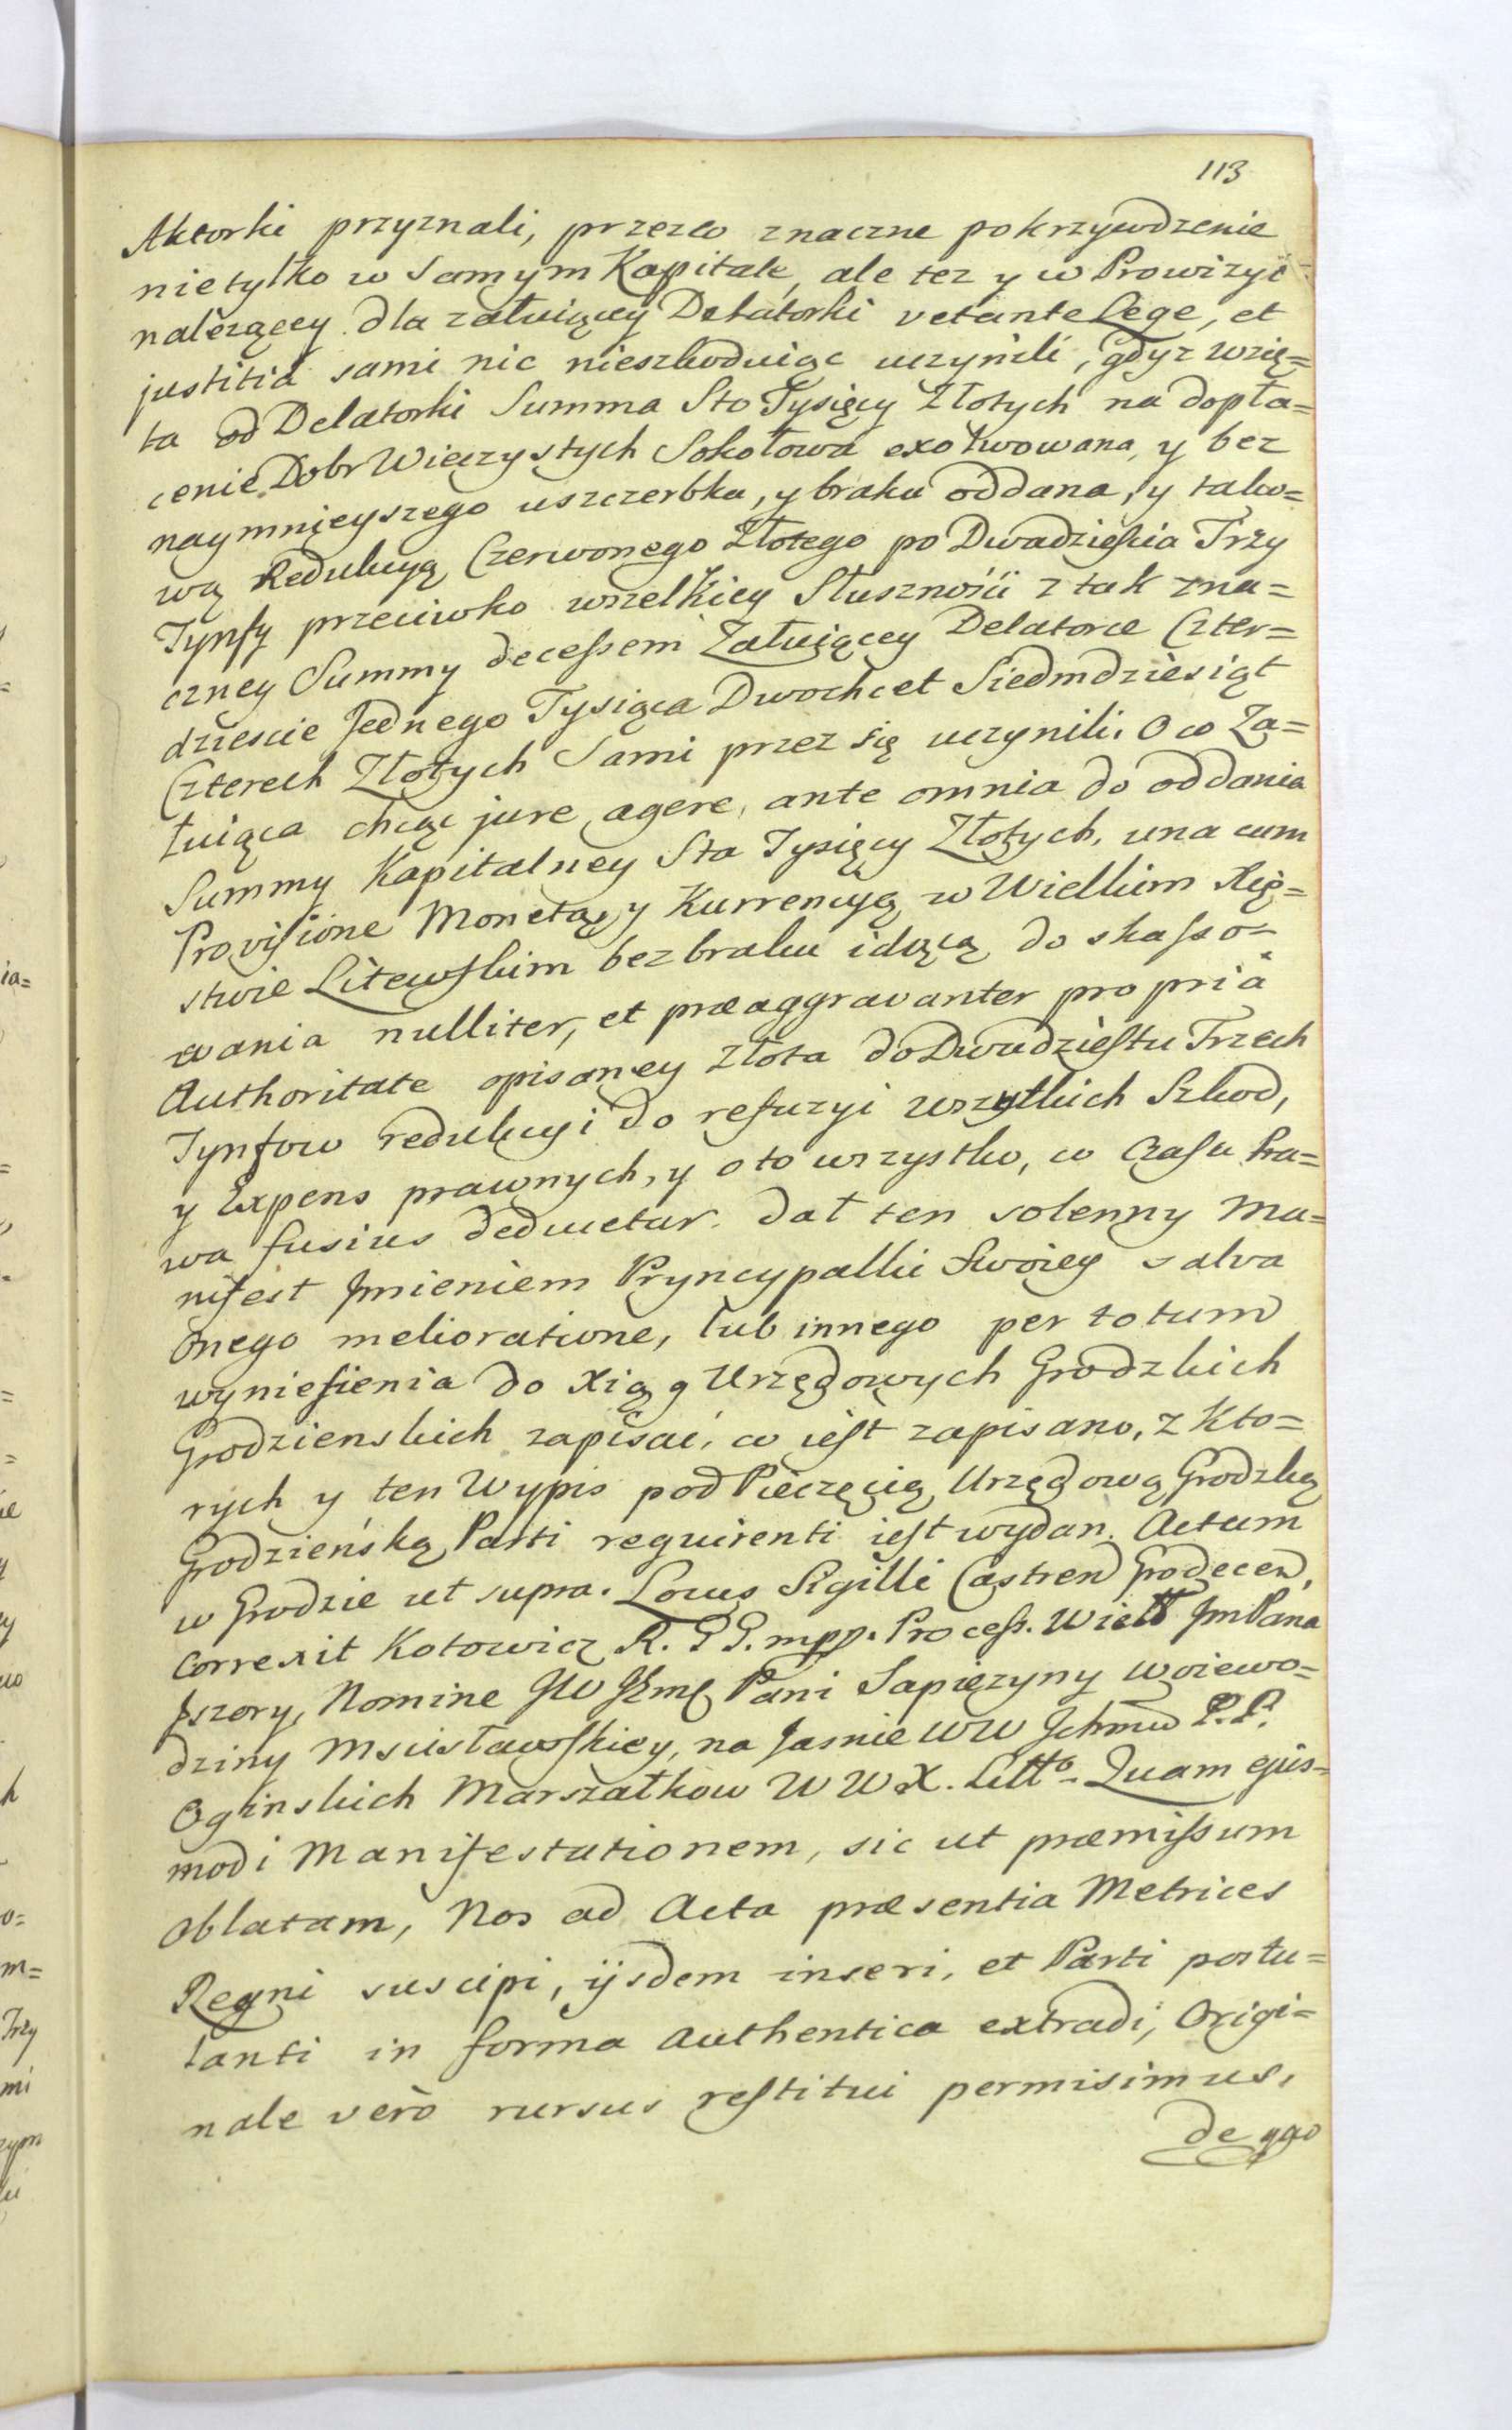 113
Aktorki przyznali, przezco znaczne pokrzywdzenie
nietylko w samym Kapitale, ale tez y w Prowizyi
nalezącey dla załuiącey Delatorki vetante Lege, et
justitiâ sami nic nieszkoduiąc uczynili, gdyz wzię=
ta od Delatorki Summa Sto Tysięcy Złotych na dopła=
cenie Dobr Wieczystych Sokołowa exolwowana, y bez
naymnieyszego uszczerbku, y braku oddana, y tako=
wą Redukcyą Czerwonego Złotego po Dwadzieścia Trzy
Tynfy przeciwko wszelkiey Słuszności z tak zna=
czney Summy decessem Załuiącey Delatorce Czter=
dzieście Jednego Tysiąca Dwochcet Siedmdziesiąt
Czterech Złotych Sami przez się uczynili. O co Za=
łuiąca chcąc jure agere, ante omnia do oddania
Summy Kapitalney Sta Tysięcy Złotych, una cum
Provisione Monetą, y Kurrencyą w Wielkim Xię=
stwie Litewskim bez braku idącą do skasso=
wania nulliter, et præaggravanter propriâ
Authoritate opisaney Złota do Dwudziestu Trzech
Tynfow redukcyi do refuzyi wszytkich Szkod,
y Expens prawnych, y oto wszystko, co Czasu Pra=
wa fusius deducetur. dał ten solenny Ma=
nifest Jmieniem Pryncypalki Swoiey salva
Onego melioratione, lub innego per totum
wyniesienia do Xiąg Urzędowych Grodzkich
Grodzienskich zapisać, co iest zapisano, z Kto=
rych y ten Wypis pod Pieczęcią Urzędową Grodzką
Grodzieńską Parti requirenti iest wydan. Actum
w Grodzie ut supra. Locus Sigilli Castren Grodecen.
Correxit Kotowicz R. G G. mpp. Process. Wielt JmPana
Jszory, Nomine JW Jkmę Pani Sapieżyny Woiewo=
dziny Mscisławskiey, na Jasnie WW Jchmw P.P.
Oginskich Marszałkow W W X. Litto. Quam ejus=
modi Manifestationem, sic ut præmissum
Oblatam, Nos ad Acta præsentia Metrices
Regni suscipi, ijsdem inseri, et Parti postu=
lanti in forma Authentica extradi, Origi=
nale verò rursus restitui permisimus,
de qao